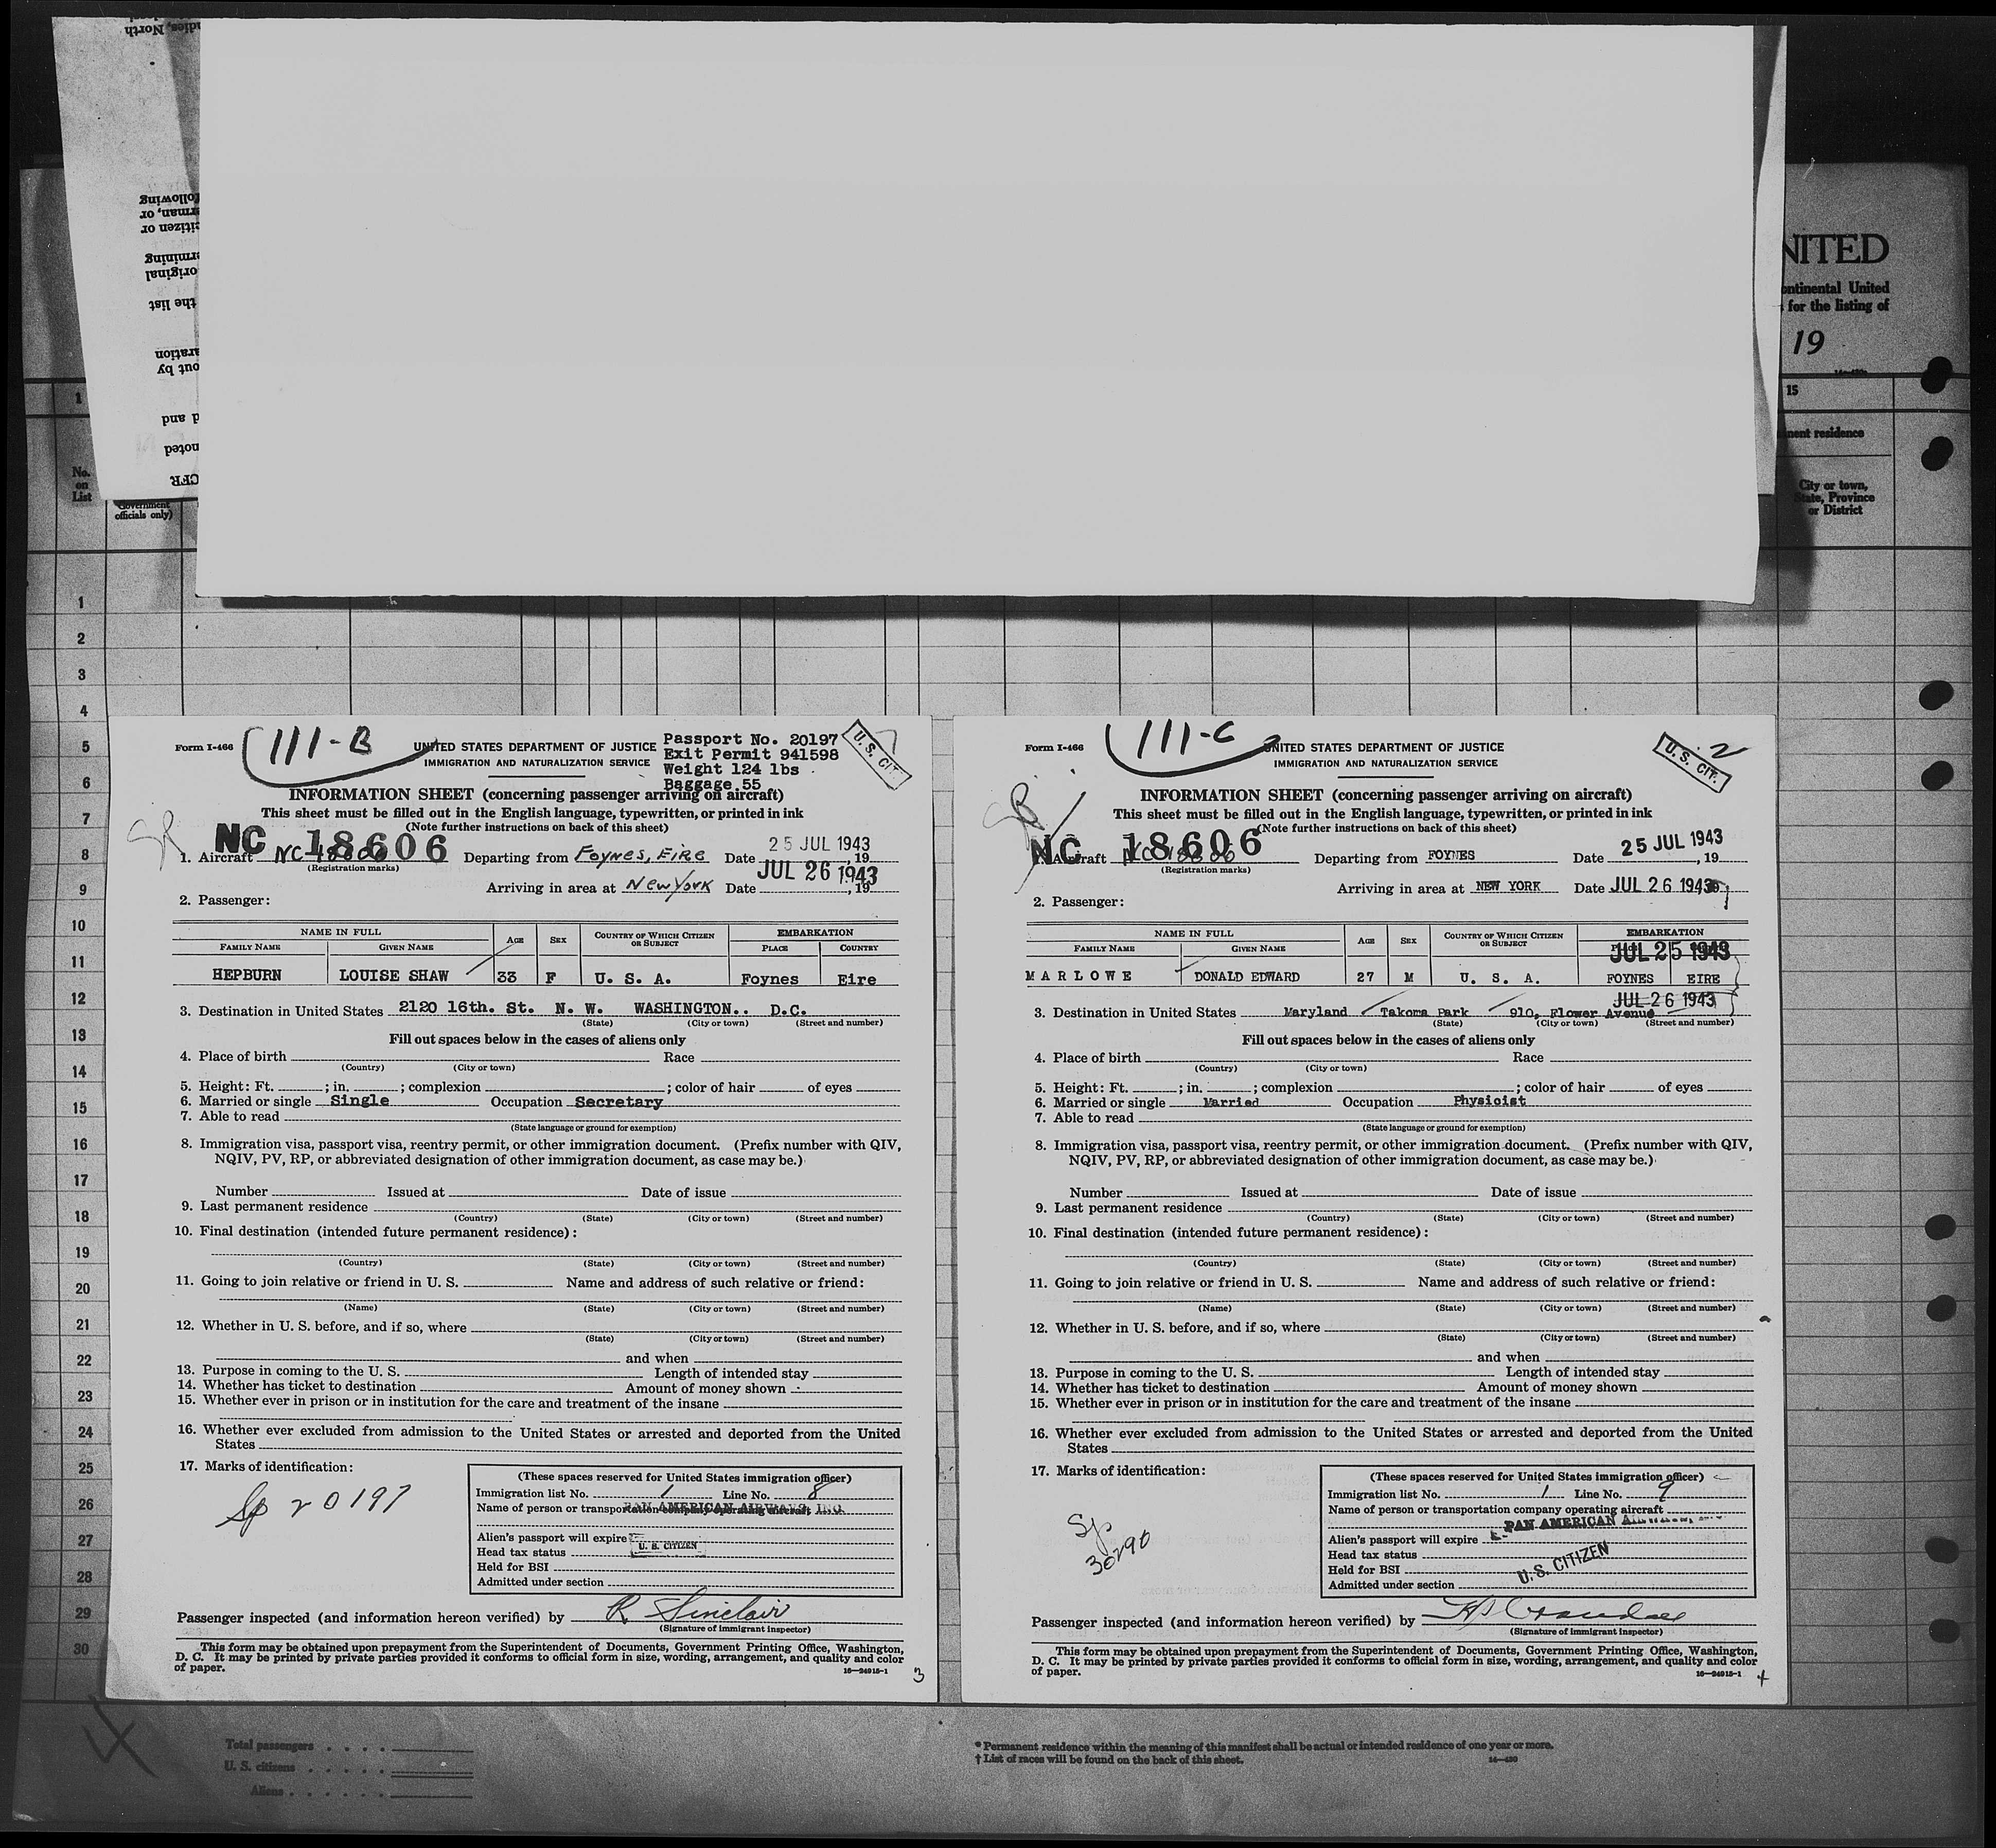 dies, North
following
rman, or
citizen or
ermining
original
the list
aration
out by
d and
noted
CFR
NITED
ontinental United
for the listing of
19
1
15
nent residence
No.
on
List
Government
officials only)
City or town,
State, Province
or District
1
2
3
4
5
6
7
8
9
10
11
12
13
14
15
16
17
18
19
20
21
22
23
24
25
26
27
28
29
30
Form I-466
111-B
UNITED STATES DEPARTMENT OF JUSTICE
IMMIGRATION AND NATURALIZATION SERVICE
Passport No. 20197
Exit Permit 941598
Weight 124 lbs
Baggage 55
U. S. CIT.
INFORMATION SHEET (concerning passenger arriving on aircraft)
This sheet must be filled out in the English language, typewritten, or printed in ink
(Note further instructions on back of this sheet)
NC 18606
1. Aircraft NC 18606 Departing from Foynes, Eire Date 25 JUL 1943, 19
(Registration marks)
Arriving in area at New York Date JUL 26 1943, 19
2. Passenger:
NAME IN FULL AGE SEX COUNTRY OF WHICH CITIZEN OR SUBJECT EMBARKATION
FAMILY NAME GIVEN NAME PLACE COUNTRY
HEPBURN LOUISE SHAW 33 F U. S. A. Foynes Eire
3. Destination in United States 2120 16th. St. N. W. WASHINGTON.. D.C.
(State) (City or town) (Street and number)
Fill out spaces below in the cases of aliens only
4. Place of birth Race
(Country) (City or town)
5. Height: Ft. ; in. ; complexion ; color of hair of eyes
6. Married or single Single Occupation Secretary
7. Able to read
(State language or ground for exemption)
8. Immigration visa, passport visa, reentry permit, or other immigration document. (Prefix number with QIV,
NQIV, PV, RP, or abbreviated designation of other immigration document, as case may be.)
Number Issued at Date of issue
9. Last permanent residence
(Country) (State) (City or town) (Street and number)
10. Final destination (intended future permanent residence):
(Country) (State) (City or town) (Street and number)
11. Going to join relative or friend in U. S. Name and address of such relative or friend:
(Name) (State) (City or town) (Street and number)
12. Whether in U. S. before, and if so, where
(State) (City or town) (Street and number)
and when
13. Purpose in coming to the U. S. Length of intended stay
14. Whether has ticket to destination Amount of money shown
15. Whether ever in prison or in institution for the care and treatment of the insane
16. Whether ever excluded from admission to the United States or arrested and deported from the United
States
17. Marks of identification:
Sp 20197
(These spaces reserved for United States immigration officer)
Immigration list No. 1 Line No. 8
Name of person or transportation company operating aircraft
PAN AMERICAN AIRWAYS INC.
Alien's passport will expire
Head tax status U. S. CITIZEN
Held for BSI
Admitted under section
Passenger inspected (and information hereon verified) by R Sinclair
(Signature of immigrant inspector)
This form may be obtained upon prepayment from the Superintendent of Documents, Government Printing Office, Washington,
D. C. It may be printed by private parties provided it conforms to official form in size, wording, arrangement, and quality and color
of paper.
16—24915-1
3
Form I-466
111-C
UNITED STATES DEPARTMENT OF JUSTICE
IMMIGRATION AND NATURALIZATION SERVICE
U. S. CIT.
2
INFORMATION SHEET (concerning passenger arriving on aircraft)
This sheet must be filled out in the English language, typewritten, or printed in ink
(Note further instructions on back of this sheet)
NC 18606
1. Aircraft NC 18606 Departing from FOYNES Date 25 JUL 1943, 19
(Registration marks)
Arriving in area at NEW YORK Date JUL 26 1943
2. Passenger:
NAME IN FULL AGE SEX COUNTRY OF WHICH CITIZEN OR SUBJECT EMBARKATION
FAMILY NAME GIVEN NAME PLACE
JUL 25 1943
MARLOWE DONALD EDWARD 27 M U. S. A. FOYNES EIRE
JUL 26 1943
3. Destination in United States Maryland Takoma Park 910, Flower Avenue
(State) (City or town) (Street and number)
Fill out spaces below in the cases of aliens only
4. Place of birth Race
(Country) (City or town)
5. Height: Ft. ; in. ; complexion ; color of hair of eyes
6. Married or single Married Occupation Physicist
7. Able to read
(State language or ground for exemption)
8. Immigration visa, passport visa, reentry permit, or other immigration document. (Prefix number with QIV,
NQIV, PV, RP, or abbreviated designation of other immigration document, as case may be.)
Number Issued at Date of issue
9. Last permanent residence
(Country) (State) (City or town) (Street and number)
10. Final destination (intended future permanent residence):
(Country) (State) (City or town) (Street and number)
11. Going to join relative or friend in U. S. Name and address of such relative or friend:
(Name) (State) (City or town) (Street and number)
12. Whether in U. S. before, and if so, where
(State) (City or town) (Street and number)
and when
13. Purpose in coming to the U. S. Length of intended stay
14. Whether has ticket to destination Amount of money shown
15. Whether ever in prison or in institution for the care and treatment of the insane
16. Whether ever excluded from admission to the United States or arrested and deported from the United
States
17. Marks of identification:
Sp
30290
(These spaces reserved for United States immigration officer)
Immigration list No. 1 Line No. 9
Name of person or transportation company operating aircraft
PAN AMERICAN
Alien's passport will expire
Head tax status
Held for BSI
U. S. CITIZEN
Admitted under section
Passenger inspected (and information hereon verified) by
(Signature of immigrant inspector)
This form may be obtained upon prepayment from the Superintendent of Documents, Government Printing Office, Washington,
D. C. It may be printed by private parties provided it conforms to official form in size, wording, arrangement, and quality and color
of paper.
16—24915-1
4
Total passengers
U. S. citizens
Aliens
* Permanent residence within the meaning of this manifest shall be actual or intended residence of one year or more.
† List of races will be found on the back of this sheet.